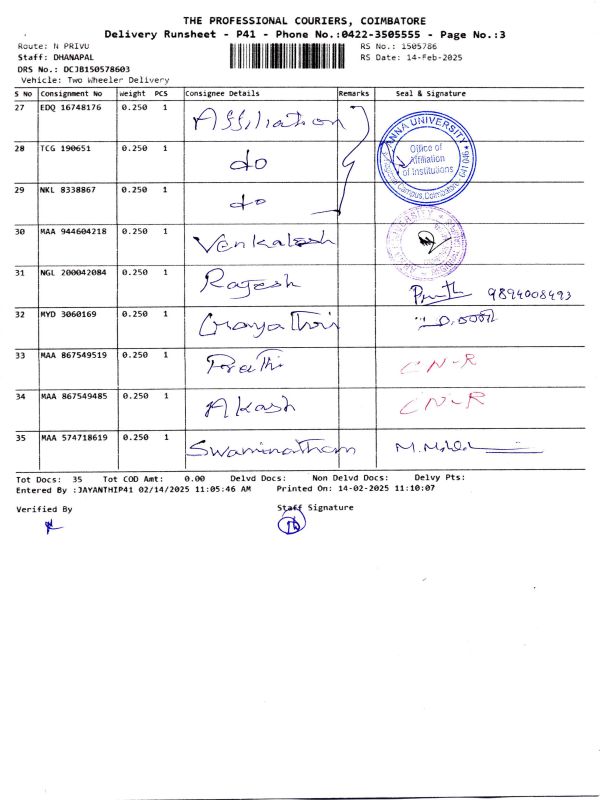 THE PROFESSIONAL COURIERS, COIMBATORE
Delivery Runsheet - P41 - Phone No.:0422-3505555 - Page No.:3
Route: N PRIVU RS No.: 1505786
Staff: DHANAPAL RS Date: 14-Feb-2025
DRS No.: DCJB150578603
Vehicle: Two Wheeler Delivery
S No Consignment No Weight PCS Consignee Details Remarks Seal & Signature
27 EDQ 16748176 0.250 1 Affiliation
28 TCG 190651 0.250 1 do
29 NKL 8338867 0.250 1 do
ANNA UNIVERSITY
Office of
Affiliation
of Institutions
Regional Campus, Coimbatore - 641 046
30 MAA 944604218 0.250 1 Venkalesh
31 NGL 200042084 0.250 1 Rajesh 9894008493
32 MYD 3060169 0.250 1 Gayathri
33 MAA 867549519 0.250 1 Preethi CN-R
34 MAA 867549485 0.250 1 Akash CN-R
35 MAA 574718619 0.250 1 Swaminatham
Tot Docs: 35 Tot COD Amt: 0.00 Delvd Docs: Non Delvd Docs: Delvy Pts:
Entered By :JAYANTHIP41 02/14/2025 11:05:46 AM Printed On: 14-02-2025 11:10:07
Verified By Staff Signature